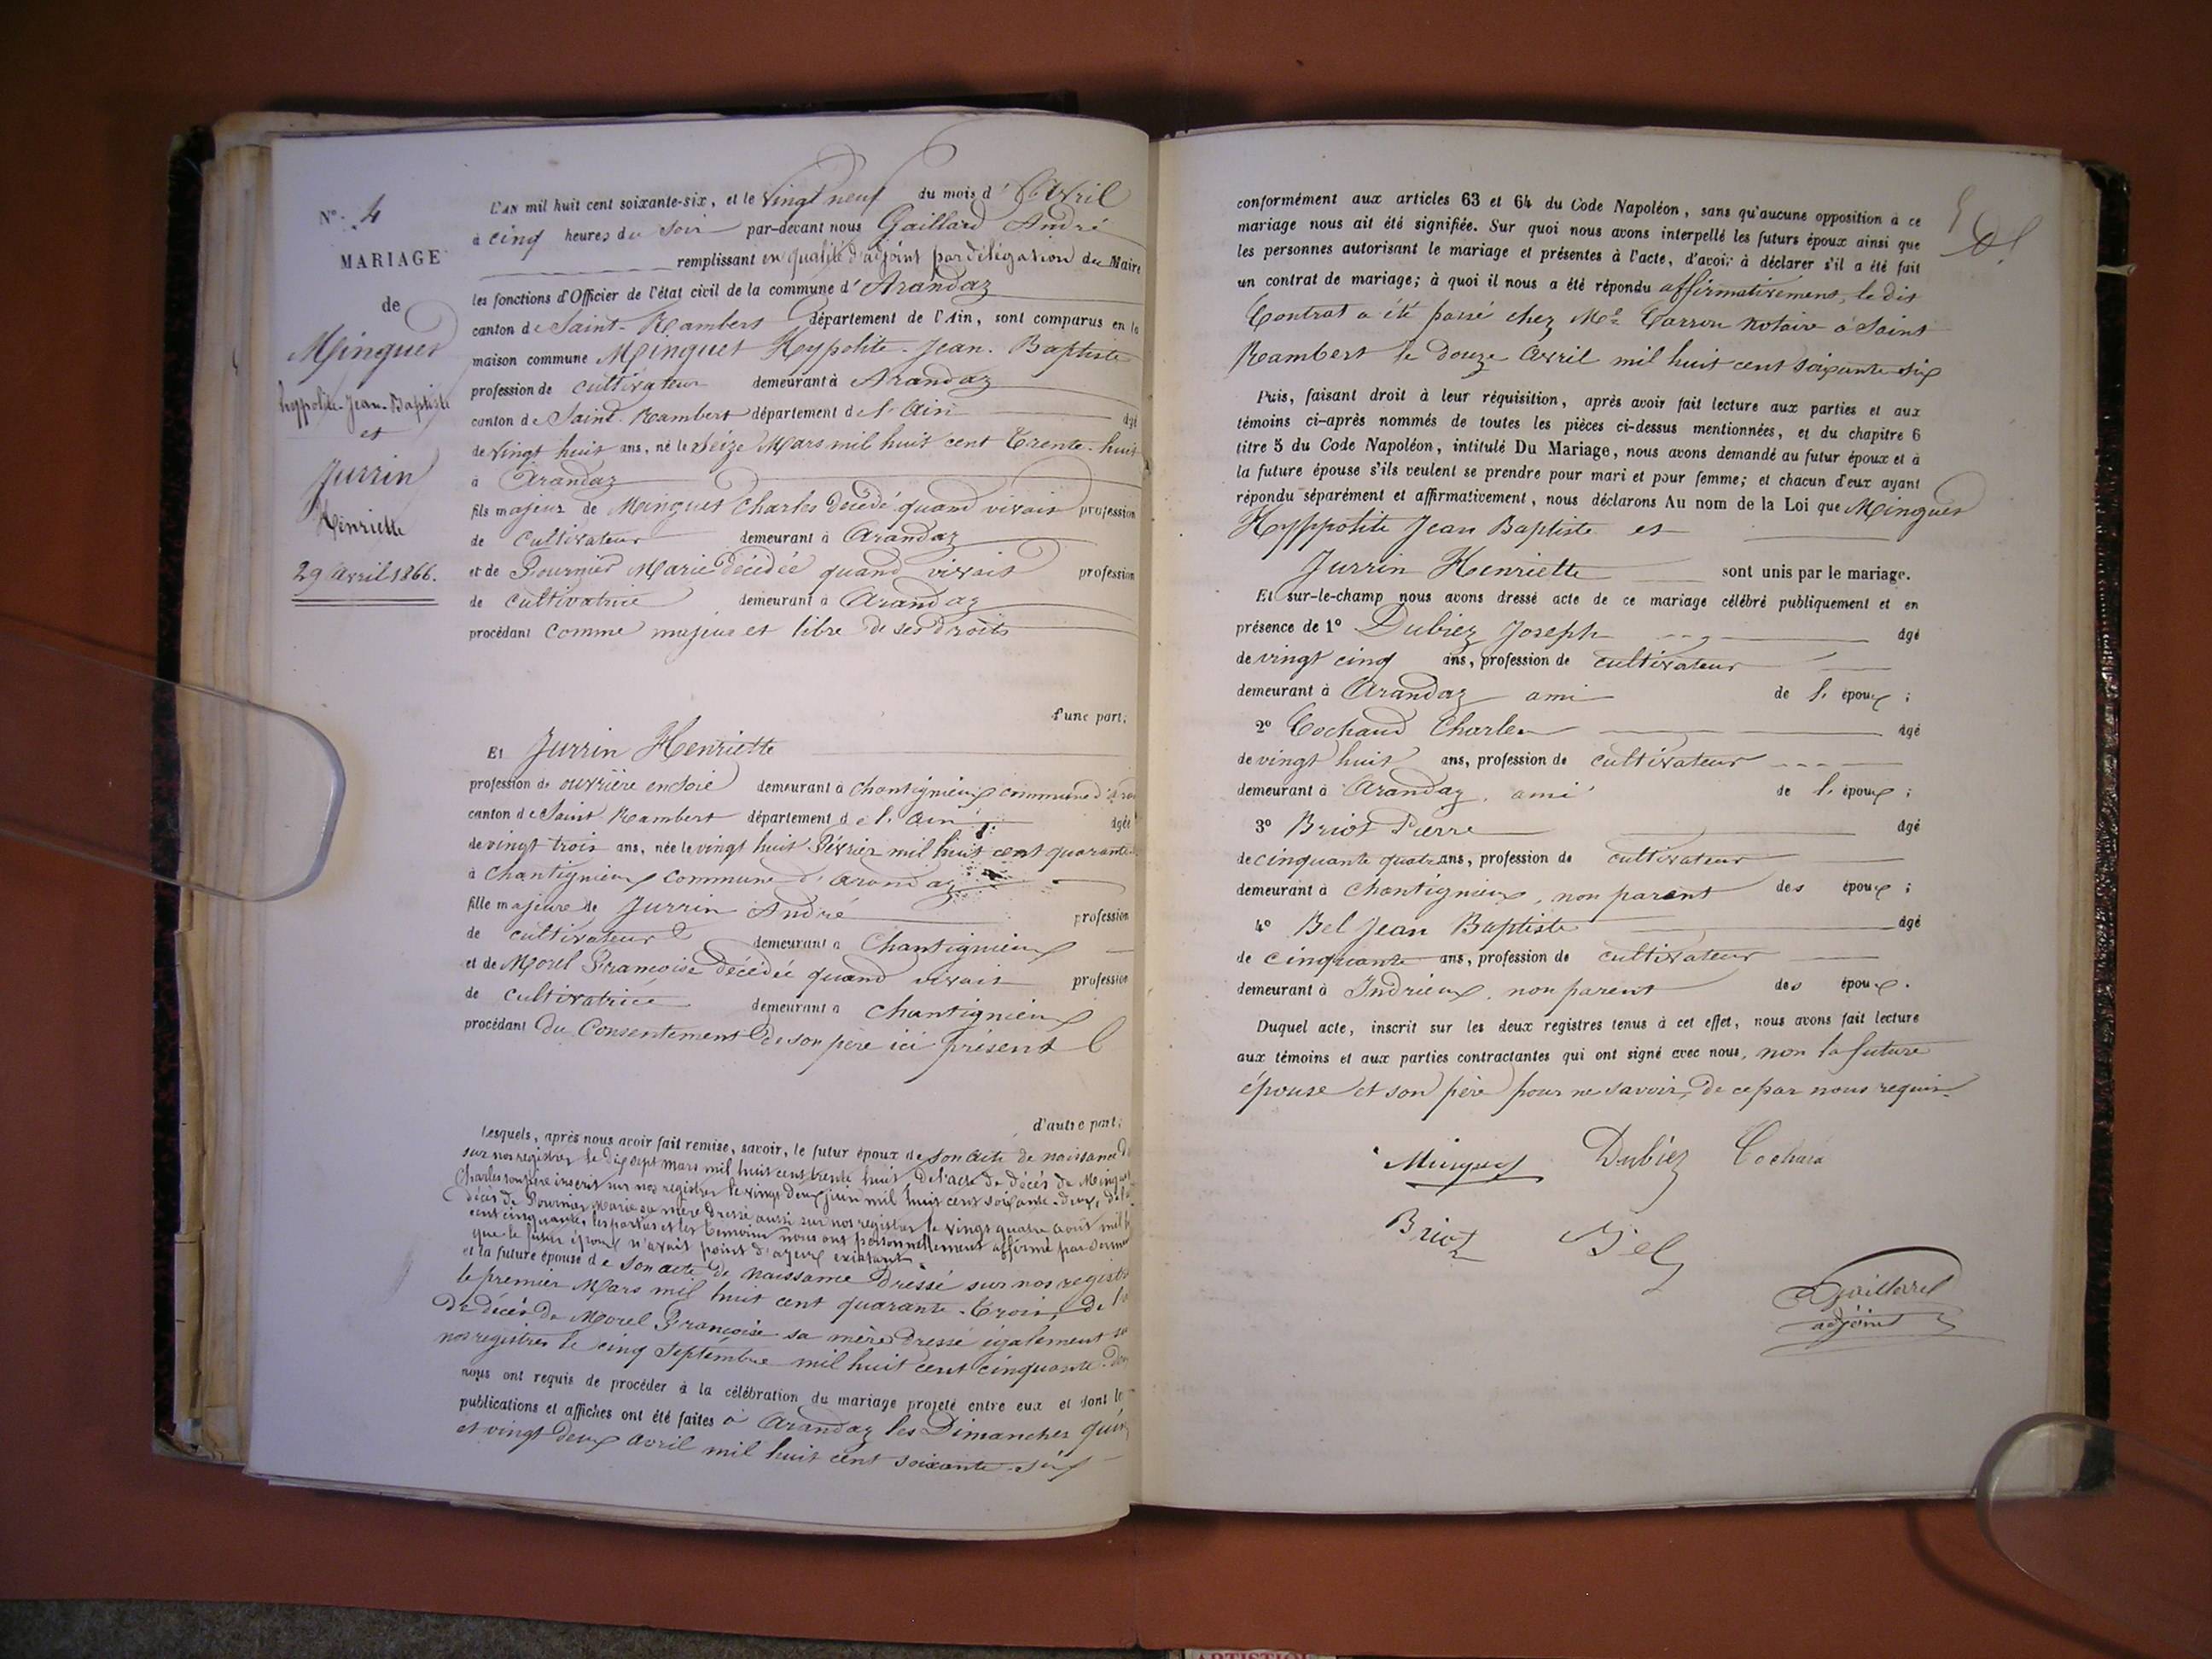 N°. 4
MARIAGE
de
Minguet
hyppolite-Jean-Baptiste
et
Jurrin
Henriette
29 Avril 1866.
L'AN mil huit cent soixante-six, et le Vingt neuf du mois d'Avril
à cinq heures du Soir par-devant nous Gaillard André
remplissant en qualité d'adjoint par délégation du Maire
les fonctions d'Officier de l'état civil de la commune d'Arandaz
canton de Saint-Rambert département de l'Ain, sont comparus en la
maison commune Minguet Hypolite-Jean-Baptiste
profession de cultivateur demeurant à Arandaz
canton de Saint-Rambert département de l'Ain âgé
de Vingt huit ans, né le Seize Mars mil huit cent Trente-huit
à Arandaz
fils majeur de Minguet Charles décédé quand vivait profession
de Cultivateur demeurant à Arandaz
et de Fournier Marie décédée quand vivait profession
de cultivatrice demeurant à Arandaz
procédant comme majeur et libre de ses droits
d'une part;
Et Jurrin Henriette
profession de ouvrière en soie demeurant à Chantignieux commune d'
canton de Saint Rambert département de l'Ain âgée
de vingt trois ans, née le vingt huit Février mil huit cent quarante
à Chantignieux commune d'Arandaz
fille majeure de Jurrin André profession
de cultivateur demeurant à Chantignieux
et de Morel Françoise décédée quand vivait profession
de cultivatrice demeurant à Chantignieux
procédant du Consentement de son père ici présent
d'autre part;
Lesquels, après nous avoir fait remise, savoir, le futur époux de Son acte de naissance
sur nos registres le dix sept mars mil huit cent trente huit, de l'acte de décès de Minguet
Charles son père inscrit sur nos registres le vingt deux juin mil huit cent soixante-deux, de l'
décès de Fournier Marie sa mère dressé aussi sur nos registres le vingt quatre août mil
cent cinquante, les parties et les témoins nous ont personnellement affirmé par serment
que le futur époux n'avait point d'ayeux existant.
et la future épouse de Son acte de naissance dressé sur nos registres
le premier Mars mil huit cent quarante-trois, de l'
de décès de Morel Françoise sa mère dressé également
nos registres le cinq Septembre mil huit cent cinquante
nous ont requis de procéder à la célébration du mariage projeté entre eux et dont les
publications et affiches ont été faites à Arandaz les Dimanches
et vingt deux Avril mil huit cent soixante-six
conformément aux articles 63 et 64 du Code Napoléon, sans qu'aucune opposition à ce
mariage nous ait été signifiée. Sur quoi nous avons interpellé les futurs époux ainsi que
les personnes autorisant le mariage et présentes à l'acte, d'avoir à déclarer s'il a été fait
un contrat de mariage; à quoi il nous a été répondu affirmativement, le dit
Contrat a été passé chez Me. Carron Notaire à Saint
Rambert le douze Avril mil huit cent soixante-six
Puis, faisant droit à leur réquisition, après avoir fait lecture aux parties et aux
témoins ci-après nommés de toutes les pièces ci-dessus mentionnées, et du chapitre 6
titre 5 du Code Napoléon, intitulé Du Mariage, nous avons demandé au futur époux et à
la future épouse s'ils veulent se prendre pour mari et pour femme; et chacun d'eux ayant
répondu séparément et affirmativement, nous déclarons Au nom de la Loi que Minguet
Hyppolite Jean Baptiste et
Jurrin Henriette sont unis par le mariage.
Et sur-le-champ nous avons dressé acte de ce mariage célébré publiquement et en
présence de 1° Dubiez Joseph âgé
de vingt cinq ans, profession de cultivateur
demeurant à Arandaz ami de l'époux;
2° Cochaud Charles âgé
de vingt huit ans, profession de cultivateur
demeurant à Arandaz, ami de l'époux;
3° Briot Pierre âgé
de cinquante quatre ans, profession de cultivateur
demeurant à Chantignieux, non parent des époux;
4° Bel Jean Baptiste âgé
de Cinquante ans, profession de cultivateur
demeurant à Indrieux, non parent des époux.
Duquel acte, inscrit sur les deux registres tenus à cet effet, nous avons fait lecture
aux témoins et aux parties contractantes qui ont signé avec nous, non la future
épouse et son père pour ne savoir, de ce par nous requis.
Minguet Dubiez Cochard
Briot Bel
Gaillard
adjoint